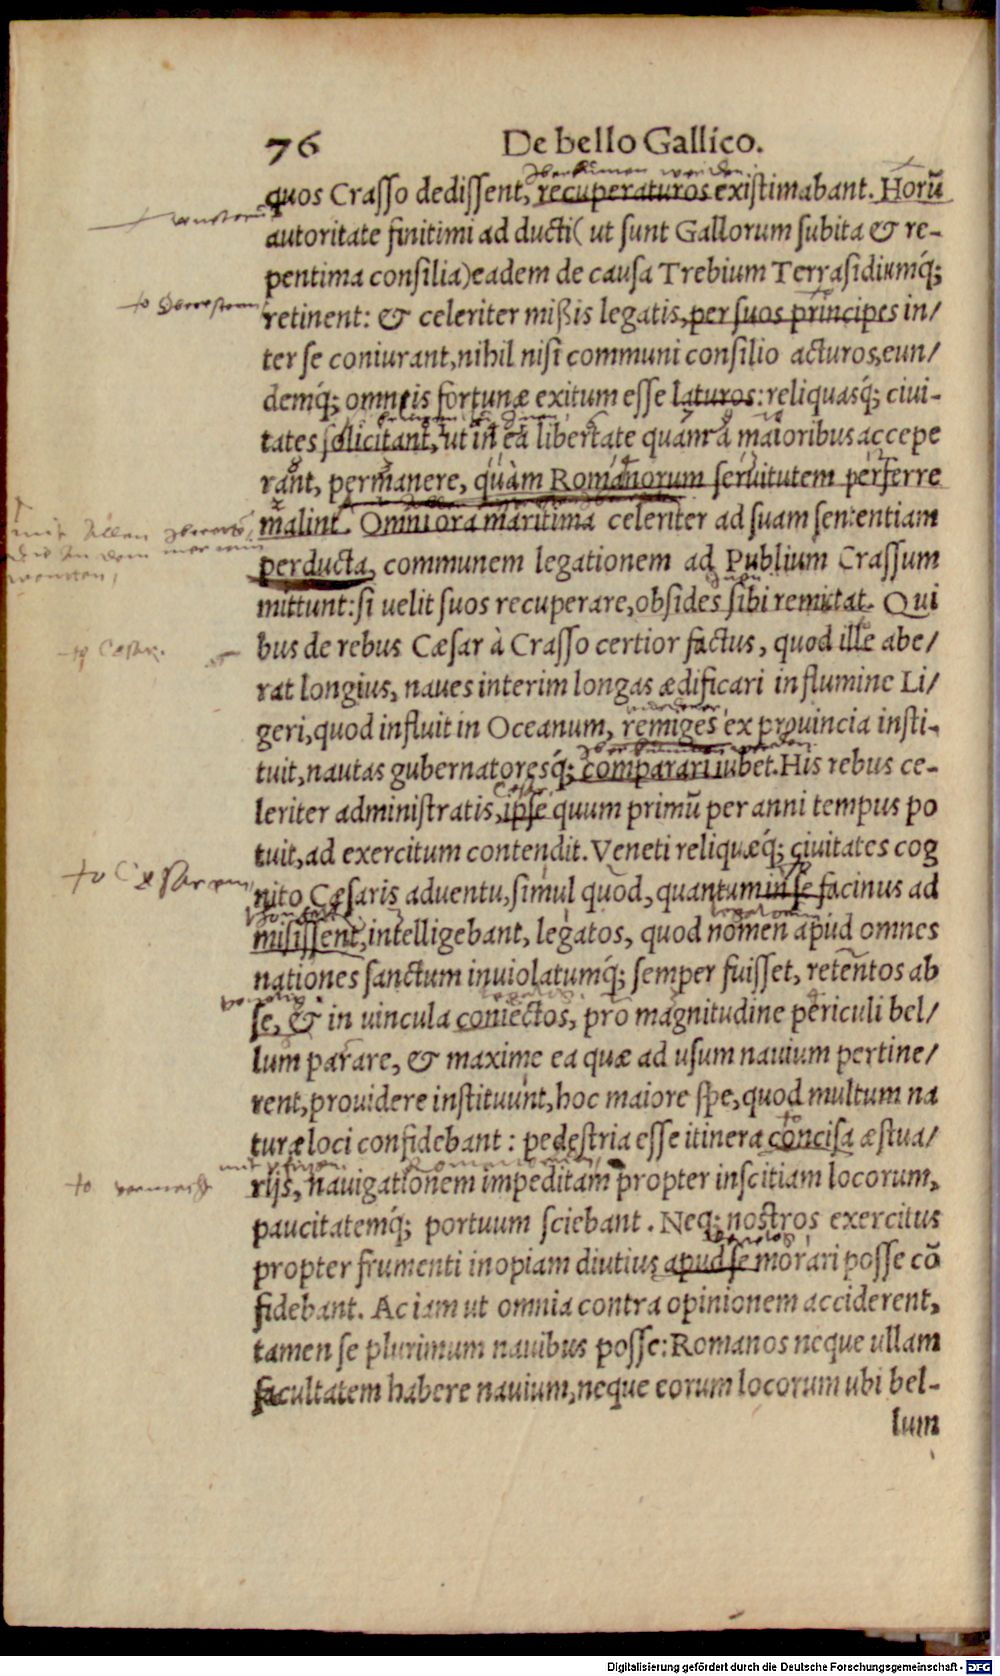 76 De bello Gallico.
quos Crasso dedissent, recuperaturos existimabant. Horū
autoritate finitimi ad ducti( ut sunt Gallorum subita & re-
pentima consilia)eadem de causa Trebium Terrasidiumq́;
retinent: & celeriter mißis legatis,per suos principes in/
ter se coniurant,nihil nisi communi consilio acturos,eun/
demq́; omneis fortunæ exitum esse laturos:reliquasq́; ciui-
tates solicitant, ut in ea libertate quam à maioribus accepe
rant, permanere, quàm Romanorum seruitutem perferre
malint. Omni ora maritima celeriter ad suam sententiam
perducta, communem legationem ad Publium Crassum
mittunt:si uelit suos recuperare,obsides sibi remittat. Qui
bus de rebus Cæsar à Crasso certior factus, quod ille abe/
rat longius, naues interim longas ædificari in flumine Li/
geri,quod influit in Oceanum, remiges ex prouincia insti-
tuit,nautas gubernatoresq́; comparari iubet.His rebus ce-
leriter administratis,ipse quum primū per anni tempus po
tuit,ad exercitum contendit.Veneti reliquæq́; ciuitates cog
nito Cæsaris aduentu,simul quod, quantum in se facinus ad
misissent,intelligebant, legatos, quod nomen apud omnes
nationes sanctum inuiolatumq́; semper fuisset, retentos ab
se, & in uincula coniectos, pro magnitudine periculi bel/
lum parare, & maxime ea quæ ad usum nauium pertine/
rent,prouidere instituunt,hoc maiore spe,quod multum na
turæ loci confidebant : pedestria esse itinera concisa æstua/
rijs, nauigationem impeditam propter inscitiam locorum,
paucitatemq́; portuum sciebant . Neq; nostros exercitus
propter frumenti inopiam diutius apud se morari posse cō
fidebant. Ac iam ut omnia contra opinionem acciderent,
tamen se plurimum nauibus posse:Romanos neque ullam
facultatem habere nauium,neque eorum locorum ubi bel-
lum
Digitalisierung gefördert durch die Deutsche Forschungsgemeinschaft - DFG